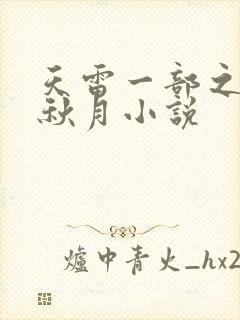 天雷一部之
秋月小說
爐中青火_hx2